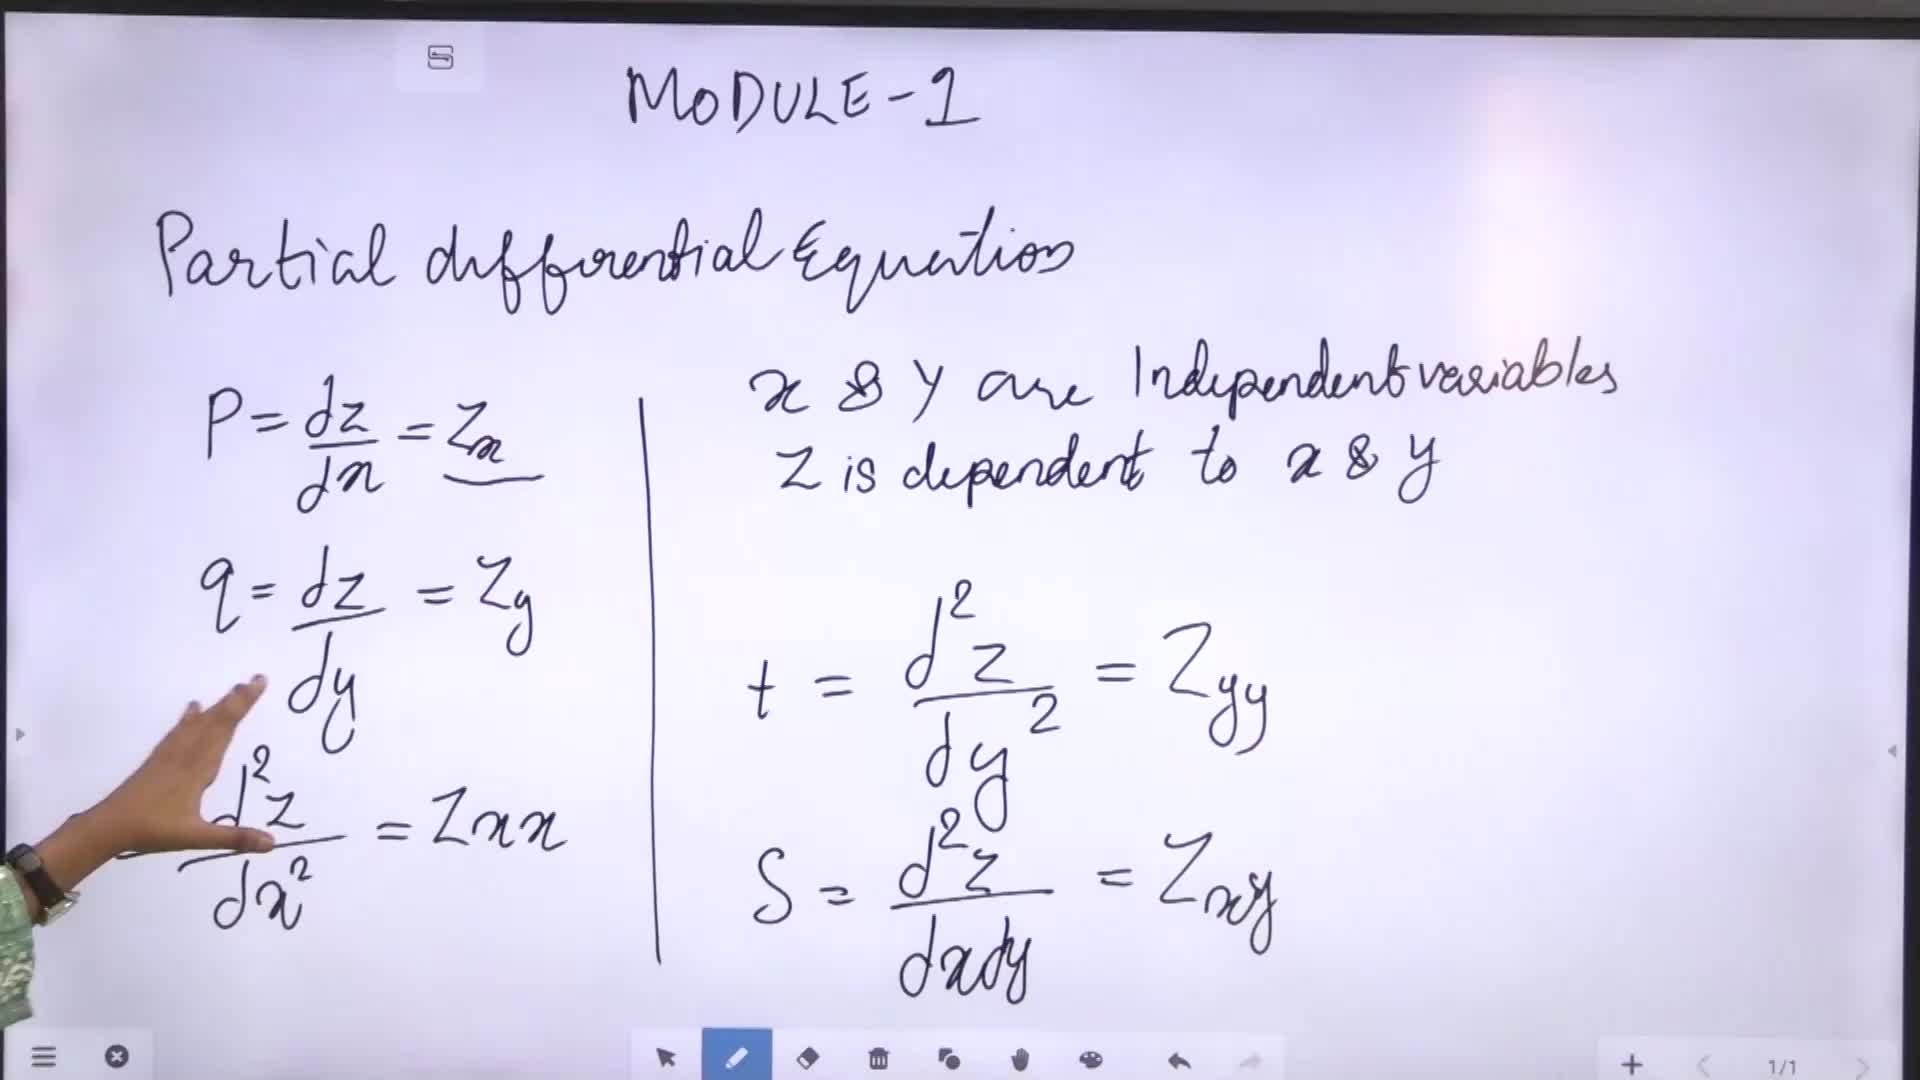 MODULE-1
Partial differential Equation
P = dz/dx = Zx
q = dz/dy = Zy
d²z/dx² = Zxx
x & y are Independent variables
Z is dependent to x & y
t = d²z/dy² = Zyy
S = d²z/dxdy = Zxy
1/1